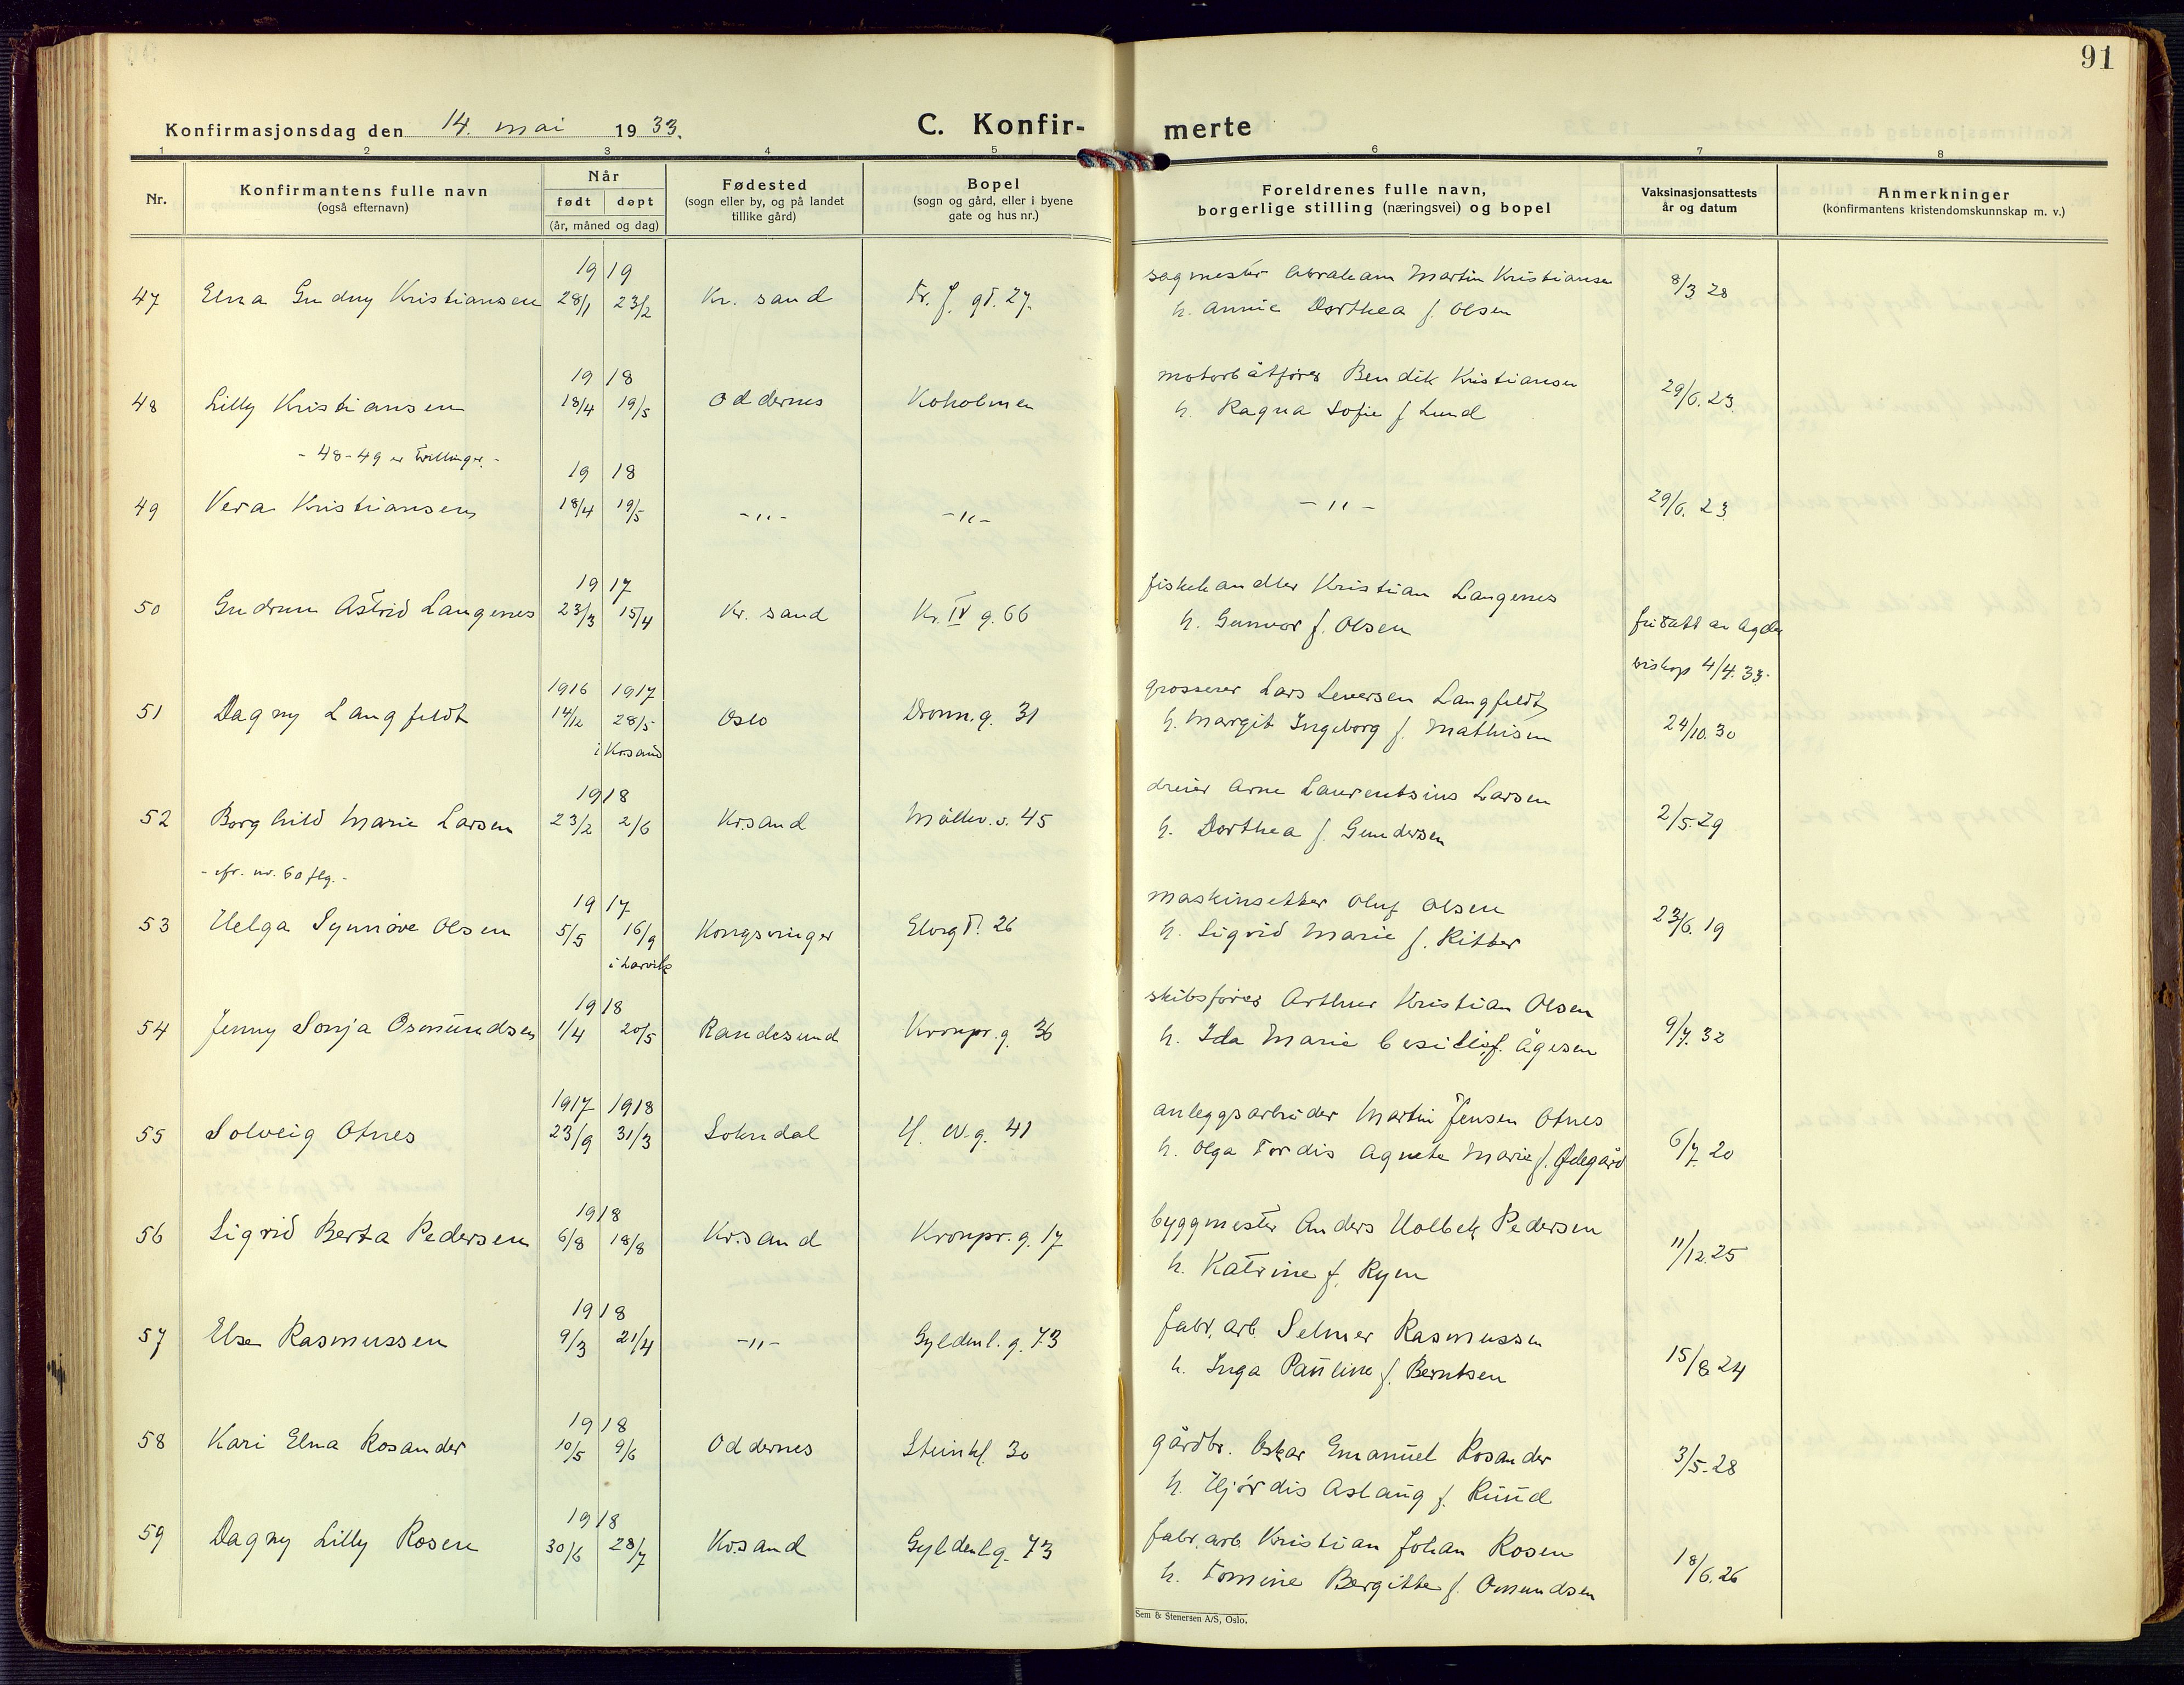 91
Konfirmasjonsdag den 14. mai 1933.
C. Konfir- merte
1 2 3 4 5 6 7 8
Nr.
Konfirmantens fulle navn
(også efternavn)
Når
født døpt
(år, måned og dag)
Fødested
(sogn eller by, og på landet
tillike gård)
Bopel
(sogn og gård, eller i byene
gate og hus nr.)
Foreldrenes fulle navn,
borgerlige stilling (næringsvei) og bopel
Vaksinasjonsattests
år og datum
Anmerkninger
(konfirmantens kristendomskunnskap m. v.)
19 19
sagmester Abraham Martin Kristiansen
47 Elna Gudny Kristiansen 28/1 23/2 Kr. sand Tr. f. gt. 27. 8/3 28
h. Annie Dorthea f. Olsen
19 18
motorbåtfører Bendik Kristiansen
48 Lilly Kristiansen 18/4 19/5 Oddernes Koholmen 29/6. 23
h. Ragna Sofie f Lund
- 48-49 er tvillinger. -
19 18
49 Vera Kristiansen 18/4 19/5 -"- -"- -"- 29/6. 23
19 17
fiskehandler Kristian Langenes
50 Gudrun Astrid Langenes 23/3 15/4 Kr. sand Kr. IV g. 66
h. Gunvor f. Olsen
fritatt av Agder
biskop 4/4. 33.
1916 1917
grosserer Lars Leversen Langfeldt
51 Dagny Langfeldt 14/12 28/5 Oslo Dronn. g. 31
h. Margit Ingeborg f. Mathisen 24/10. 30
i Krsand
19 18
dreier Arne Laurentsius Larsen
52 Borghild Marie Larsen 23/2 2/6 Kr.sand Møllev. s. 45 2/5.29
h. Dorthea f. Gundersen
- cfr. nr. 60 flg. -
19 17
maskinsetter Oluf Olsen
53 Helga Synnøve Olsen 5/5 16/9 Kongsvinger Elvegt. 26 23/6. 19
h. Sigrid Marie f. Ritter
i Larvik
19 18
skibsfører Arthur Kristian Olsen
54 Jenny Sonja Osmundsen 1/4 20/5 Randesund Kronpr. g. 36 9/7. 32
h. Ida Marie Cesilie f. Ågesen
1917 1918
anleggsarbeider Martin Jensen Otnes
55 Solveig Otnes 23/9 31/3 Sokndal H. W. g. 41
h. Olga Tordis Agnete Marie f. Ødegård 6/7 20
19 18
byggmester Anders Holbek Pedersen
56 Sigrid Berta Pedersen 6/8 18/8 Kr.sand Kronpr. g. 17
h. Katrine f. Ryen 11/12.25
19 18
fabr. arb. Selmer Rasmussen
57 Else Rasmussen 9/3 21/4 -"- Gyldenl. g. 73
h. Inga Pauline f. Berntsen 15/8 24
19 18
58 Kari Elna Rosander 10/5 9/6 Oddernes Steinkl. 30
gårdbr. Oskar Emanuel Rosander 3/5.28
h. Hjørdis Aslaug f. Ruud
19 18
59 Dagny Lilly Rosen 30/6 28/7 Kr.sand Gyldenl g. 73
fabr. arb. Kristian Johan Rosen
h. Tomine Bergitte f. Omundsen 18/6. 26
Sem & Stenersen A/S, Oslo.